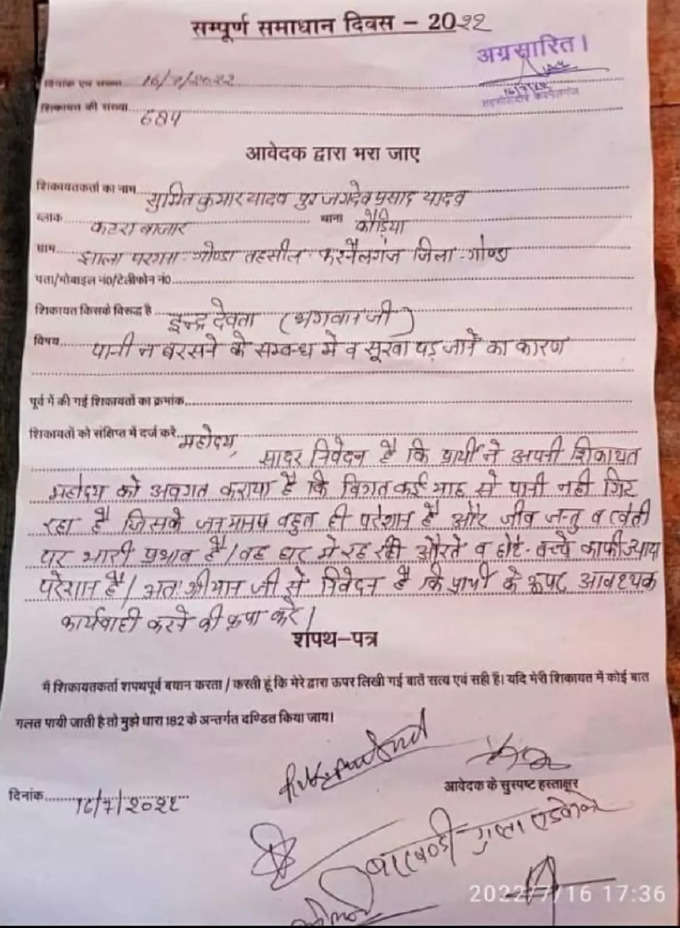 सम्पूर्ण समाधान दिवस – 2022
अग्रसारित।
16/7/22
तहसीलदार करनैलगंज
दिनांक एवं समय 16/7/2022
शिकायत की संख्या 684
आवेदक द्वारा भरा जाए
शिकायतकर्ता का नाम सुमित कुमार यादव पुत्र जगदेव प्रसाद यादव
ब्लाक कटरा बाजार थाना कौड़िया
ग्राम झाला परगना गोण्डा तहसील करनैलगंज जिला - गोण्डा
पता/मोबाइल नं0/टेलीफोन नं0
शिकायत किसके विरूद्ध है इन्द्र देवता (भगवान जी)
विषय पानी न बरसने के सम्बन्ध में व सूखा पड़ जाने का कारण
पूर्व में की गई शिकायतों का क्रमांक
शिकायतों को संक्षिप्त में दर्ज करे महोदय,
सादर निवेदन है कि प्रार्थी ने अपनी शिकायत
महोदय को अवगत कराया है कि विगत कई माह से पानी नही गिर
रहा है जिसके जनमानस बहुत ही परेशान है और जीव जन्तु व खेती
पर भारी प्रभाव है। वह घर मे रह रही औरते व छोटे-बच्चे काफी ज्यादा
परेशान है। अतः श्रीमान जी से निवेदन है कि प्रार्थी के ऊपर आवश्यक
कार्यवाही करने की कृपा करे।
शपथ–पत्र
मैं शिकायतकर्ता शपथपूर्व बयान करता / करती हूं कि मेरे द्वारा ऊपर लिखी गई बातें सत्य एवं सही है। यदि मेरी शिकायत में कोई बात
गलत पायी जाती है तो मुझे धारा 182 के अन्तर्गत दण्डित किया जाय।
आवेदक के सुस्पष्ट हस्ताक्षर
दिनांक 16/7/2022
गुप्ता एडवोकेट
2022/7/16 17:36